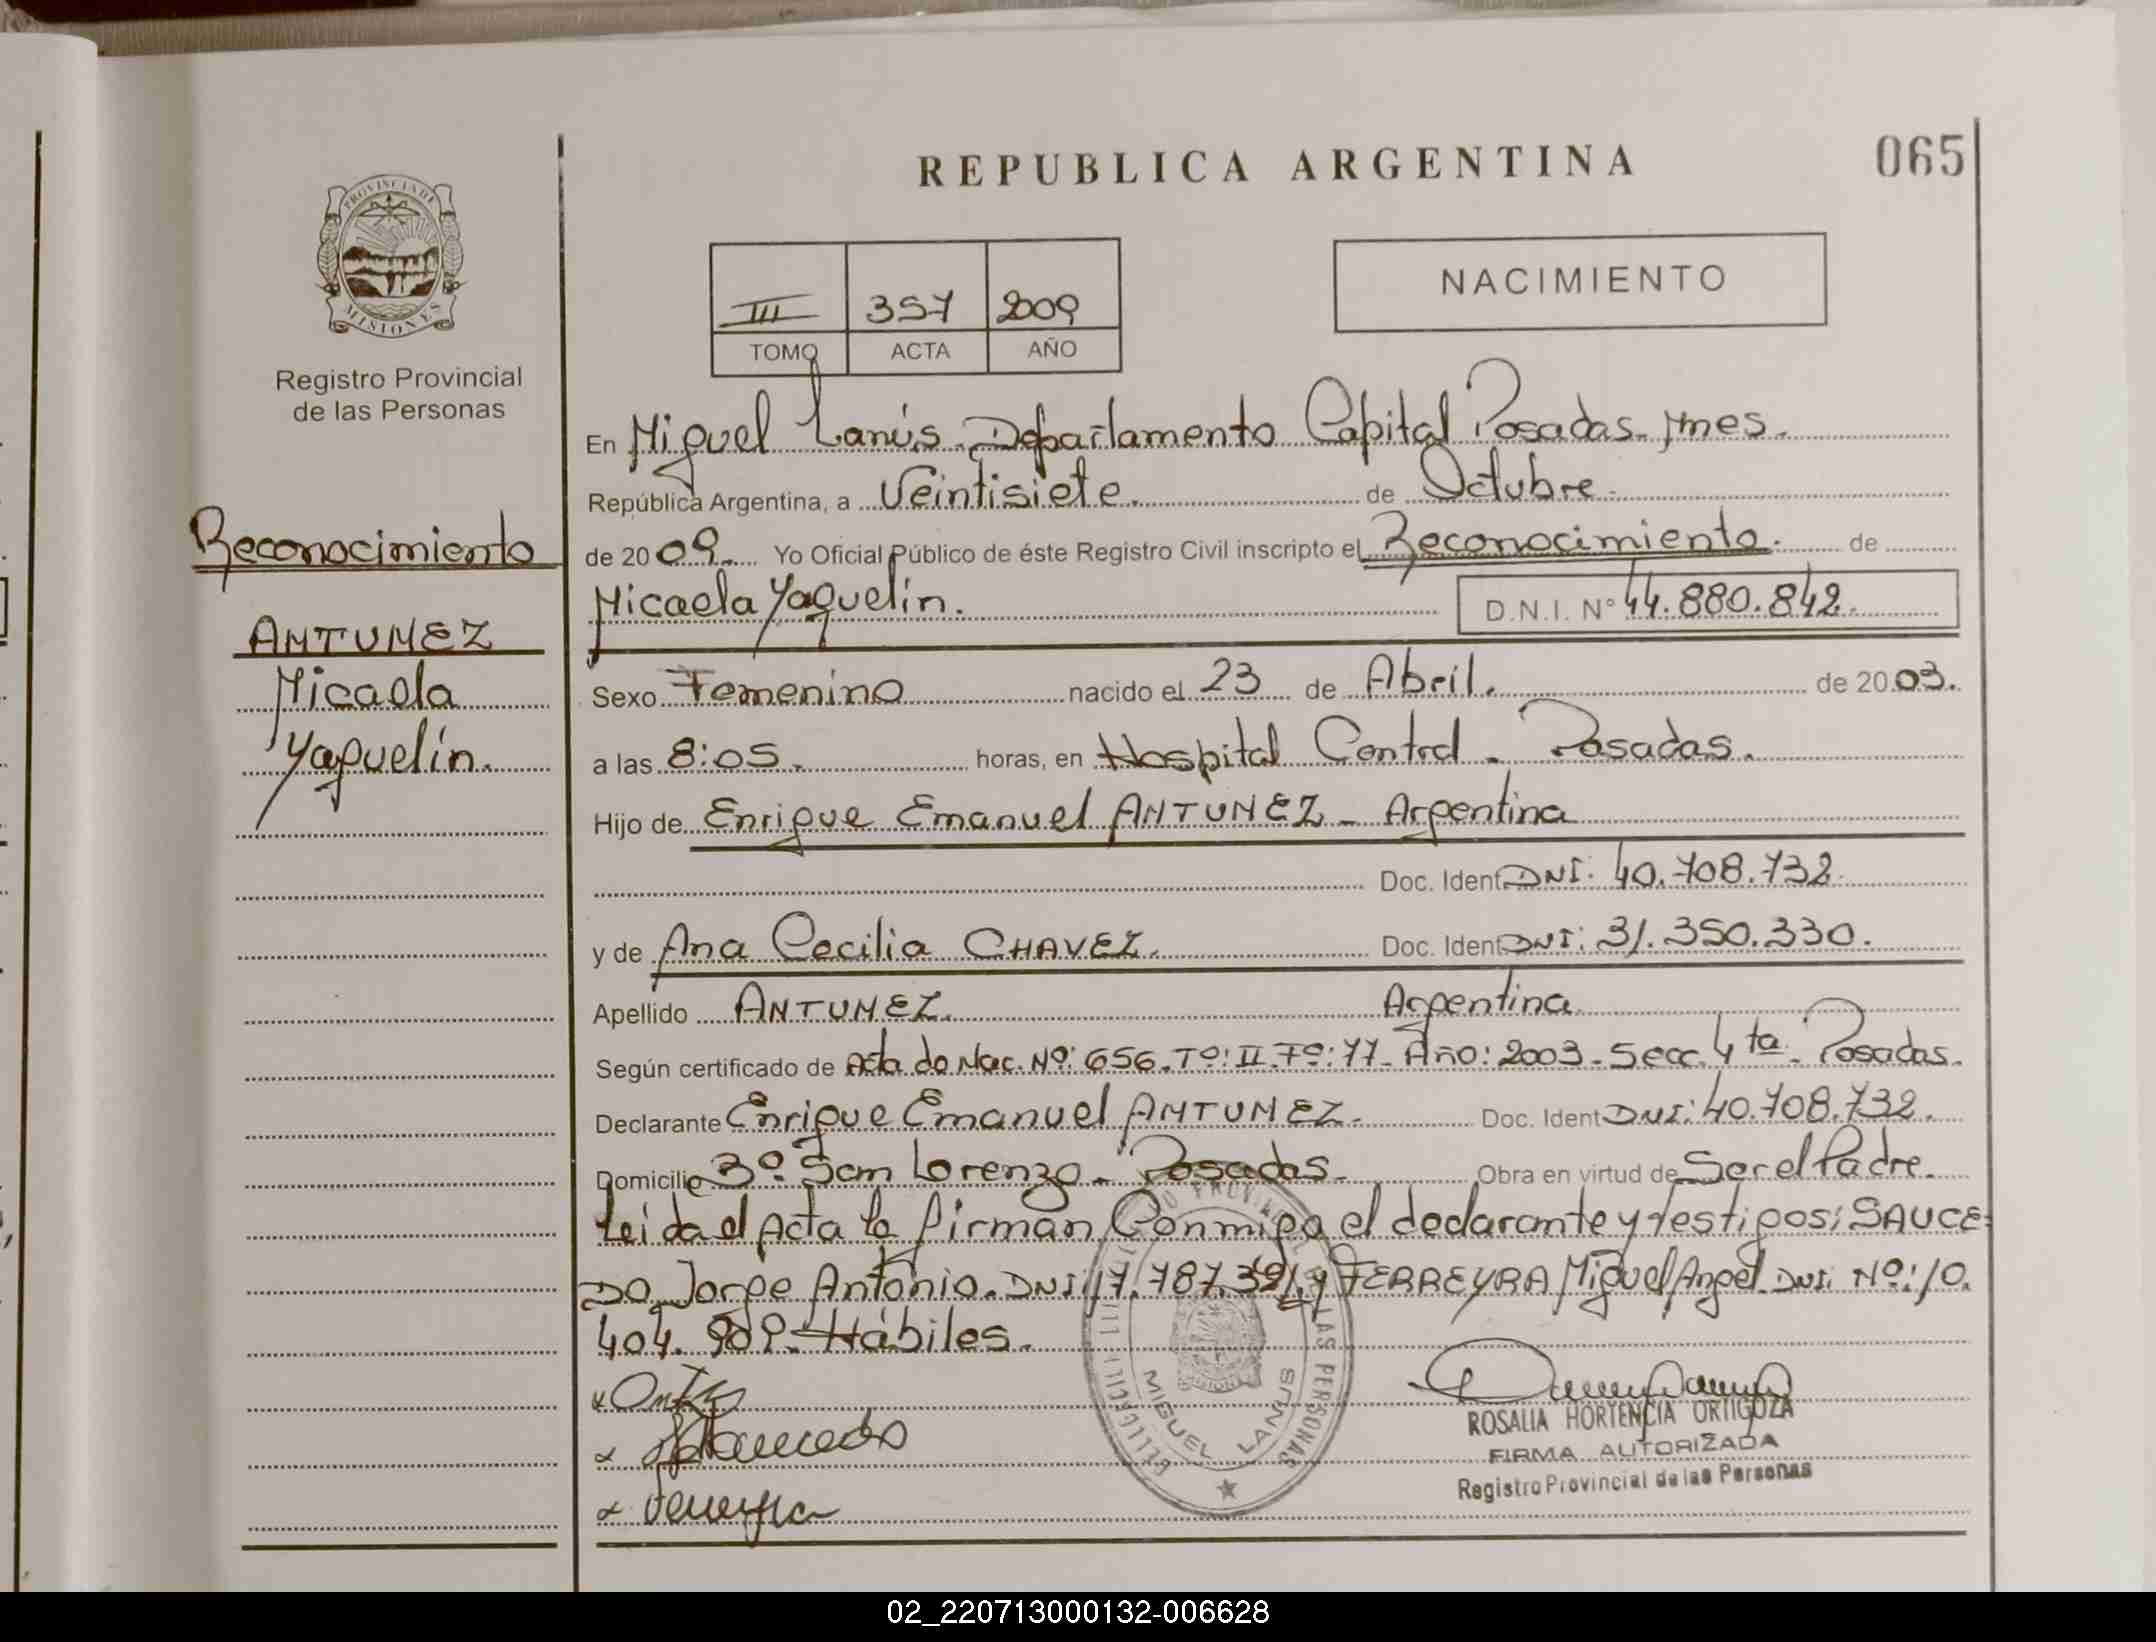 REPUBLICA ARGENTINA
065
PROVINCIA DE
MISIONES
Registro Provincial
de las Personas
III 357 2009
TOMO ACTA AÑO
NACIMIENTO
Reconocimiento
ANTUNEZ
Micaela
Yaquelín.
En Miguel Lanús. Departamento Capital Posadas. Mnes.
República Argentina, a Veintisiete. de Octubre.
de 2009. Yo Oficial Público de éste Registro Civil inscripto el Reconocimiento. de
Micaela Yaquelín. D.N.I. N° 44.880.842.
Sexo Femenino nacido el 23 de Abril. de 2003.
a las 8:05. horas, en Hospital Central. Posadas.
Hijo de Enrique Emanuel ANTUNEZ - Argentina
Doc. Ident DNI: 40.708.732
y de Ana Cecilia CHAVEZ. Doc. Ident DNI: 31.350.330.
Apellido ANTUNEZ. Argentina
Según certificado de Acta de Nac. Nº: 656. Tº: II. Fº: 77. Año: 2003. Secc. 4ta. Posadas.
Declarante Enrique Emanuel ANTUNEZ. Doc. Ident DNI: 40.708.732.
Domicilio Bº. San Lorenzo. Posadas. Obra en virtud de Ser el Padre.
Leída el Acta la firman Conmigo el declarante y testigos: SAUCE-
DO, Jorge Antonio. DNI 17.787.321 y FERREYRA Miguel Angel. DNI. Nº: 10.
404. 909. Hábiles.
MIGUEL LANUS
ROSALIA HORTENCIA ORTIGOZA
FIRMA AUTORIZADA
Registro Provincial de las Personas
02_220713000132-006628